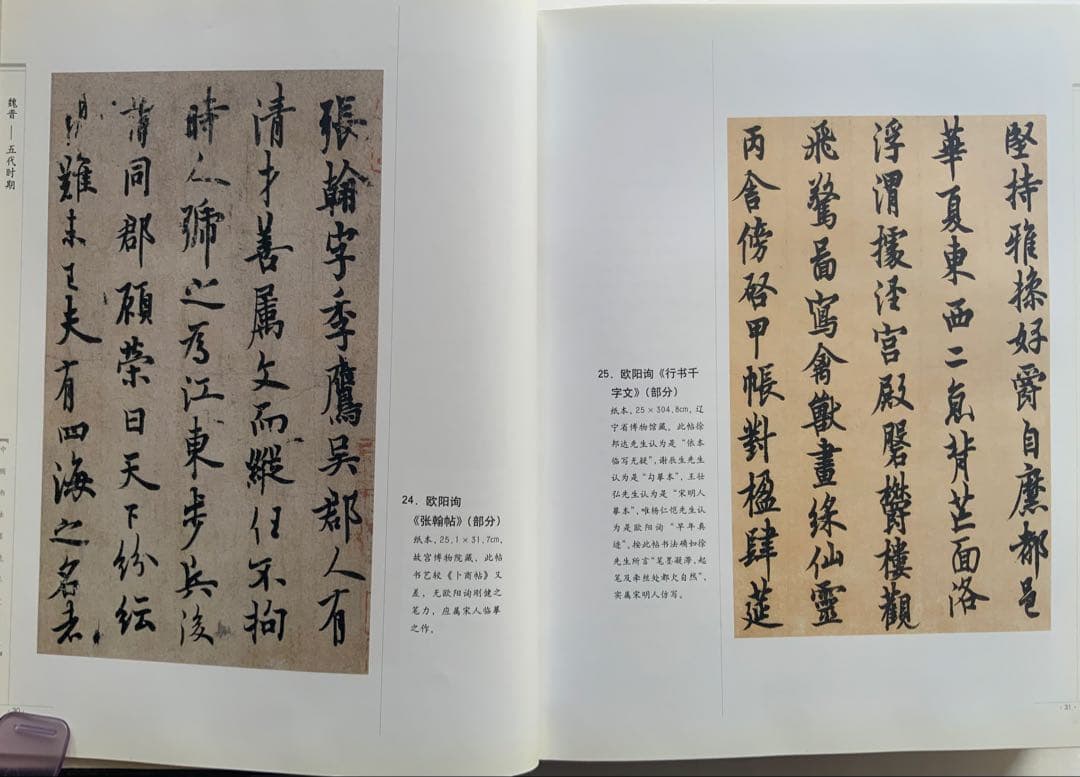 魏晋——五代时期
張翰字季鷹吴郡人有
清才善属文而縱任不拘
時人號之為江東步兵後
謂同郡顧榮曰天下紛紜
難未已夫有四海之名者
24. 欧阳询
《张翰帖》(部分)
纸本,25.1×31.7cm,
故宫博物院藏。此帖
书艺较《卜商帖》又
差,无欧阳询刚健之
笔力,应属宋人临摹
之作。
30
25. 欧阳询《行书千
字文》(部分)
纸本,25×304.8cm,辽
宁省博物馆藏。此帖徐
邦达先生认为是“依本
临写无疑”,谢辰生先生
认为是“勾摹本”,王壮
弘先生认为是“宋明人
摹本”,唯杨仁恺先生认
为是欧阳询“早年真
迹”。按此帖书法确如徐
先生所言“笔墨凝滞,起
笔及牵丝处都欠自然”,
实属宋明人仿写。
堅持雅操好爵自縻都邑
華夏東西二京背芒面洛
浮渭據涇宫殿磐欝樓觀
飛驚圖寫禽獸畫綵仙靈
丙舍傍啓甲帳對楹肆莚
31